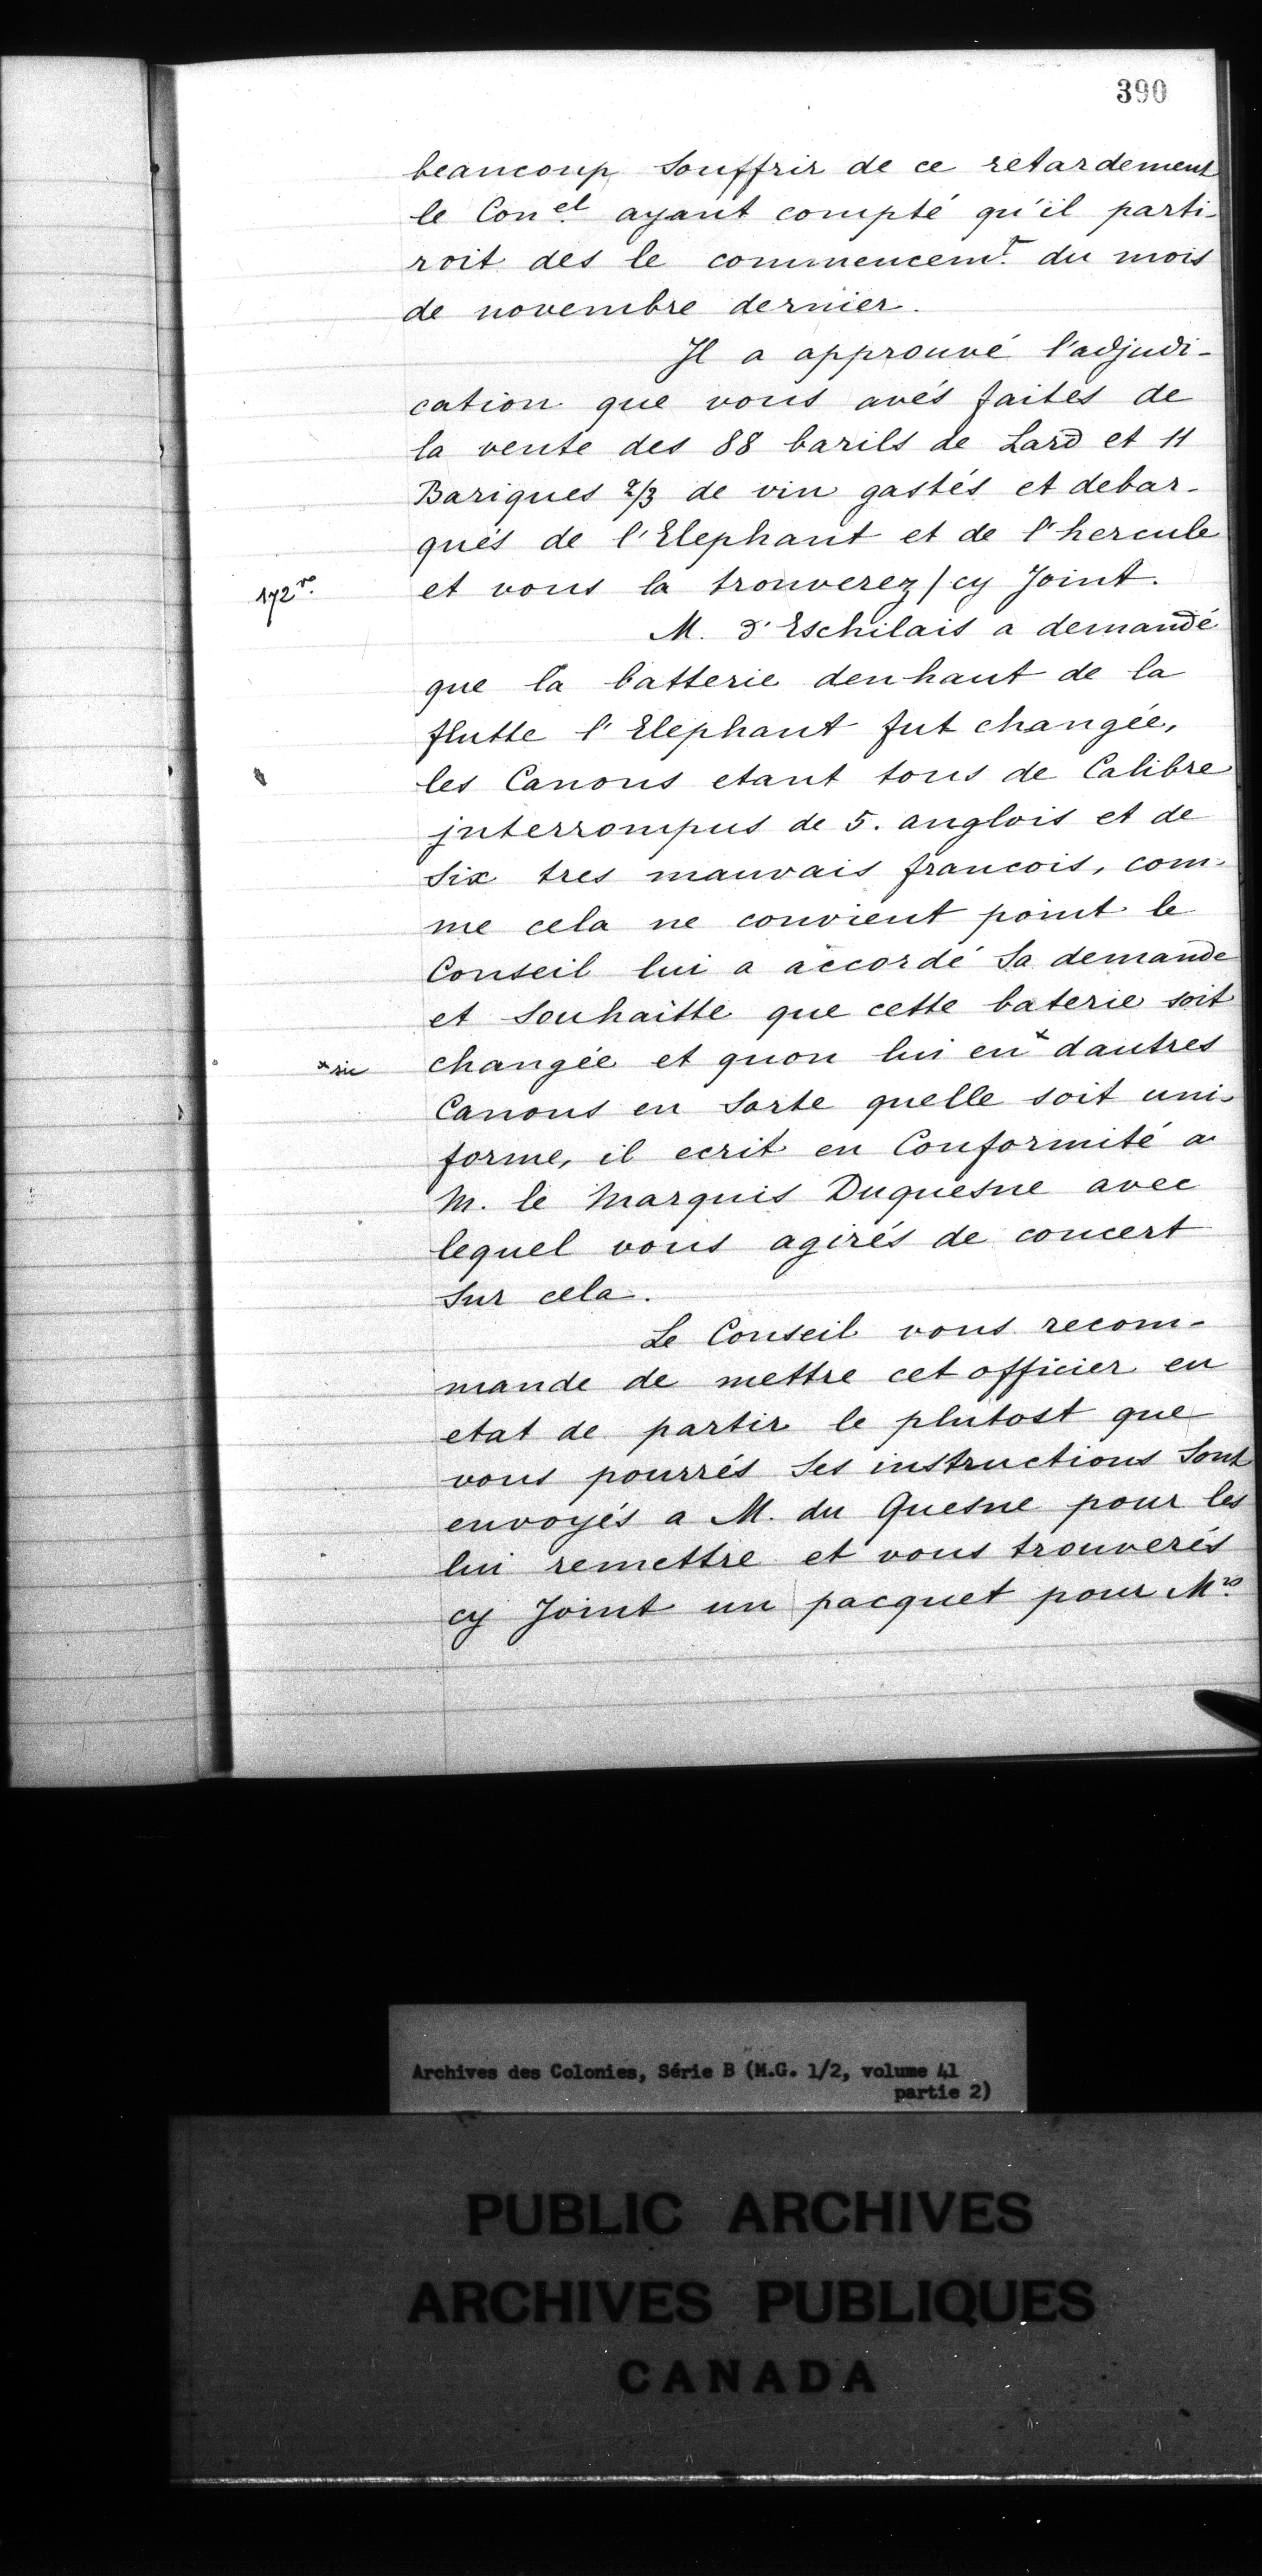 390
beaucoup Souffrir de ce retardement
le Con.el ayant compté qu'il parti-
roit des le commencem.t du mois
de novembre dernier.
Il a approuvé l'adjudi-
cation que vous avés faites de
la vente des 88 barils de Lard et 11
Bariques 2/3 de vin gastés et debar-
qués de l'Elephant et de l'hercule
172 ro.
et vous la trouverez / cy Joint.
M. d'Eschilais a demandé
que la batterie denhaut de la
flutte l'Elephant fut changée,
les Canons etant tous de Calibre
interrompus de 5. anglois et de
Six tres mauvais francois, com-
me cela ne convient point le
Conseil lui a accordé Sa demande
et Souhaitte que cette baterie soit
* sic
changée et quon lui en * dautres
Canons en Sorte quelle soit uni-
forme, il ecrit en Conformité a
M. le Marquis Duquesne avec
lequel vous agirés de concert
Sur cela.
Le Conseil vous recom-
mande de mettre cet officier en
etat de partir le plutost que
vous pourrés Ses instructions Sont
envoyés a M. du Quesne pour les
lui remettre et vous trouverés
cy Joint un pacquet pour M.rs
Archives des Colonies, Série B (M.G. 1/2, volume 41
partie 2)
PUBLIC ARCHIVES
ARCHIVES PUBLIQUES
CANADA